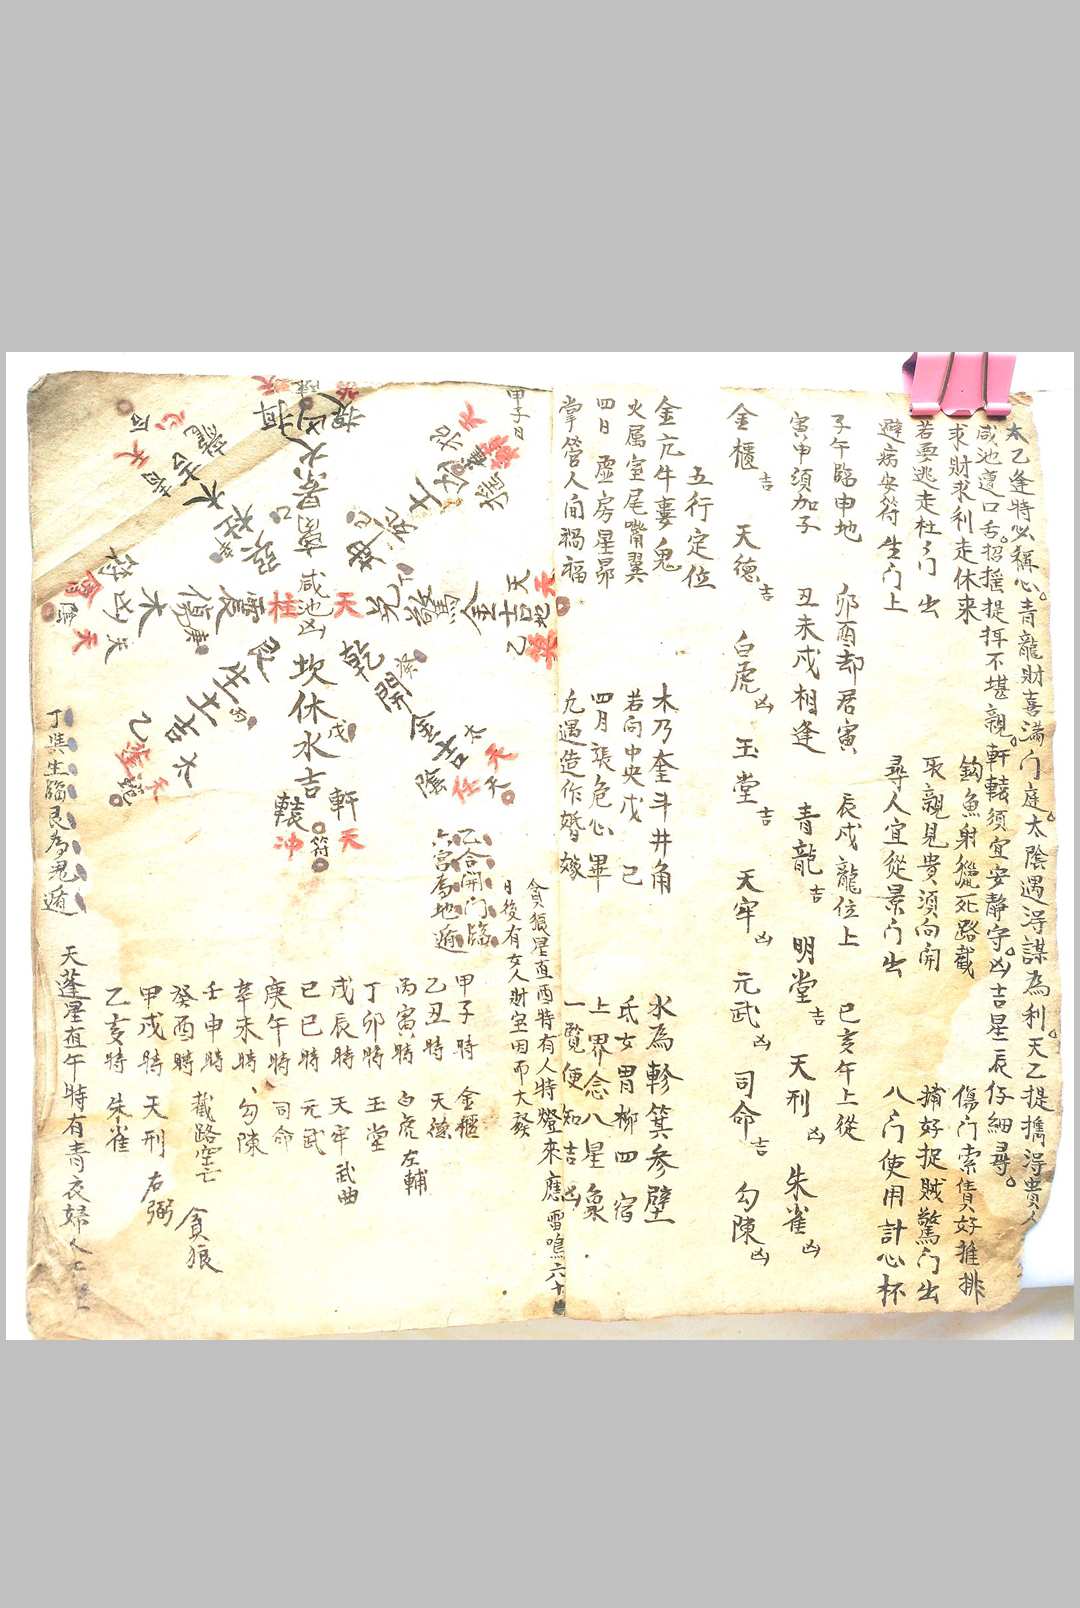 太乙逢特必稱心青龍財喜滿门庭太陰遇淂謀為利天乙提攜淂貴人
咸池遭口舌招摇提拝不堪親軒轅須宜安靜守凶吉星辰仔細尋
求財求利走休来 鈎魚射獵死路截 傷门索債好推排
若要逃走杜门出 取親見貴須向開 捕好捉贼驚门出
避病安符生门上 尋人宜從景门出 八门使用計心杯
子午臨申地 夘酉却君寅 辰戍龍位上 巳亥午上從
寅申須加子 丑未戍相逢 青龍吉 明堂吉 天刑凶 朱雀凶
金櫃吉 天德吉 白虎凶 玉堂吉 天牢凶 元武凶 司命吉 勾陳凶
五行定位
金亢牛婁鬼 木乃奎斗井角 水為軫箕参壁
火属室尾嘴翼 若向中央戊己 氐女胃柳四宿
四日虚房星昴 四月張危心畢 上界念八星象
掌管人间禍福 凢遇造作婚嫁 一覧便知吉凶
甲子日
貪狼星直酉特有人特燈來應雷鳴六十
日後有女人財宝因而大發
乙合開门臨
六宮為地遁
甲子時 金櫃
乙丑時 天德
丙寅時 白虎 左輔
丁卯時 玉堂
戊辰時 天牢 武曲
已巳時 元武
庚午時 司命
辛未時 勾陳
壬申時 截路空亡
癸酉時 貪狼
甲戍時 天刑 右弼
乙亥時 朱雀
天蓬星直午特有青衣婦人
丁與生臨艮為鬼遁
坎休水吉
戊
軒轅
天冲
符
乾開金吉
陰
天任
兌驚金吉
天柱
咸池凶
震傷木凶
艮生土吉
丙
天蓬
離景火凶
坤死土凶
巽杜木吉